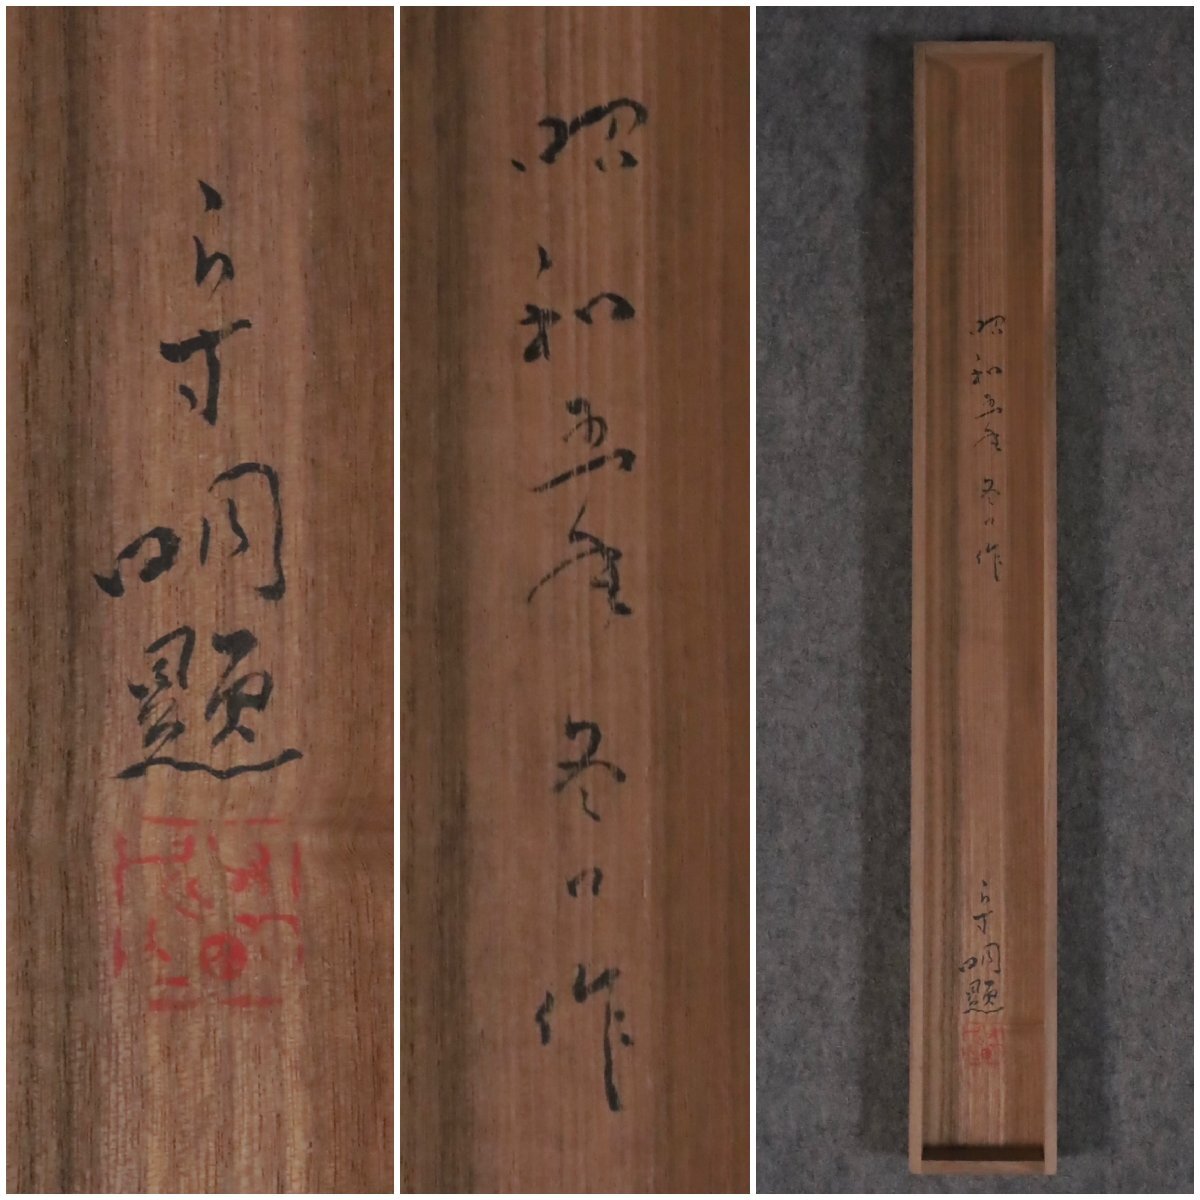 守明題
昭和五年冬日作
昭和五年冬日作
守明題